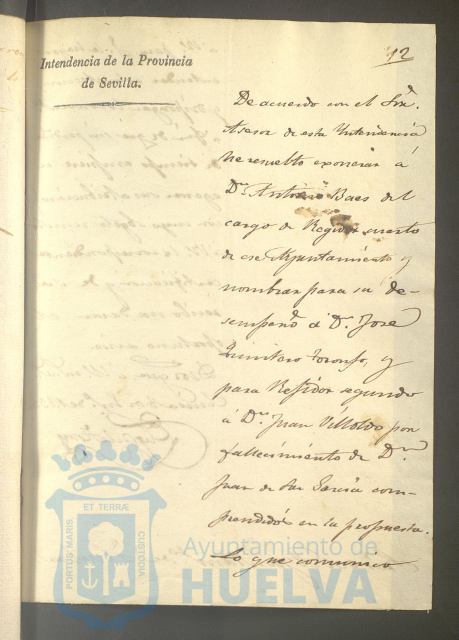 12
Intendencia de la Provincia
de Sevilla.
De acuerdo con el Sor.
Asesor de esta Intendencia
he resuelto exonerar á
Dn. Antonio Baes del
cargo de Regidor cuarto
de ese Ayuntamiento y
nombrar para su de-
sempeño á Dn. José
Quintero Toronfo, y
para Regidor segundo
á Dn. Juan Villoldo por
fallecimiento de Dn.
Juan de Garcia com-
prendidos en la propuesta.
Lo que comunico
ET TERRÆ
PORTUS MARIS
CUSTODIA
Ayuntamiento de
HUELVA